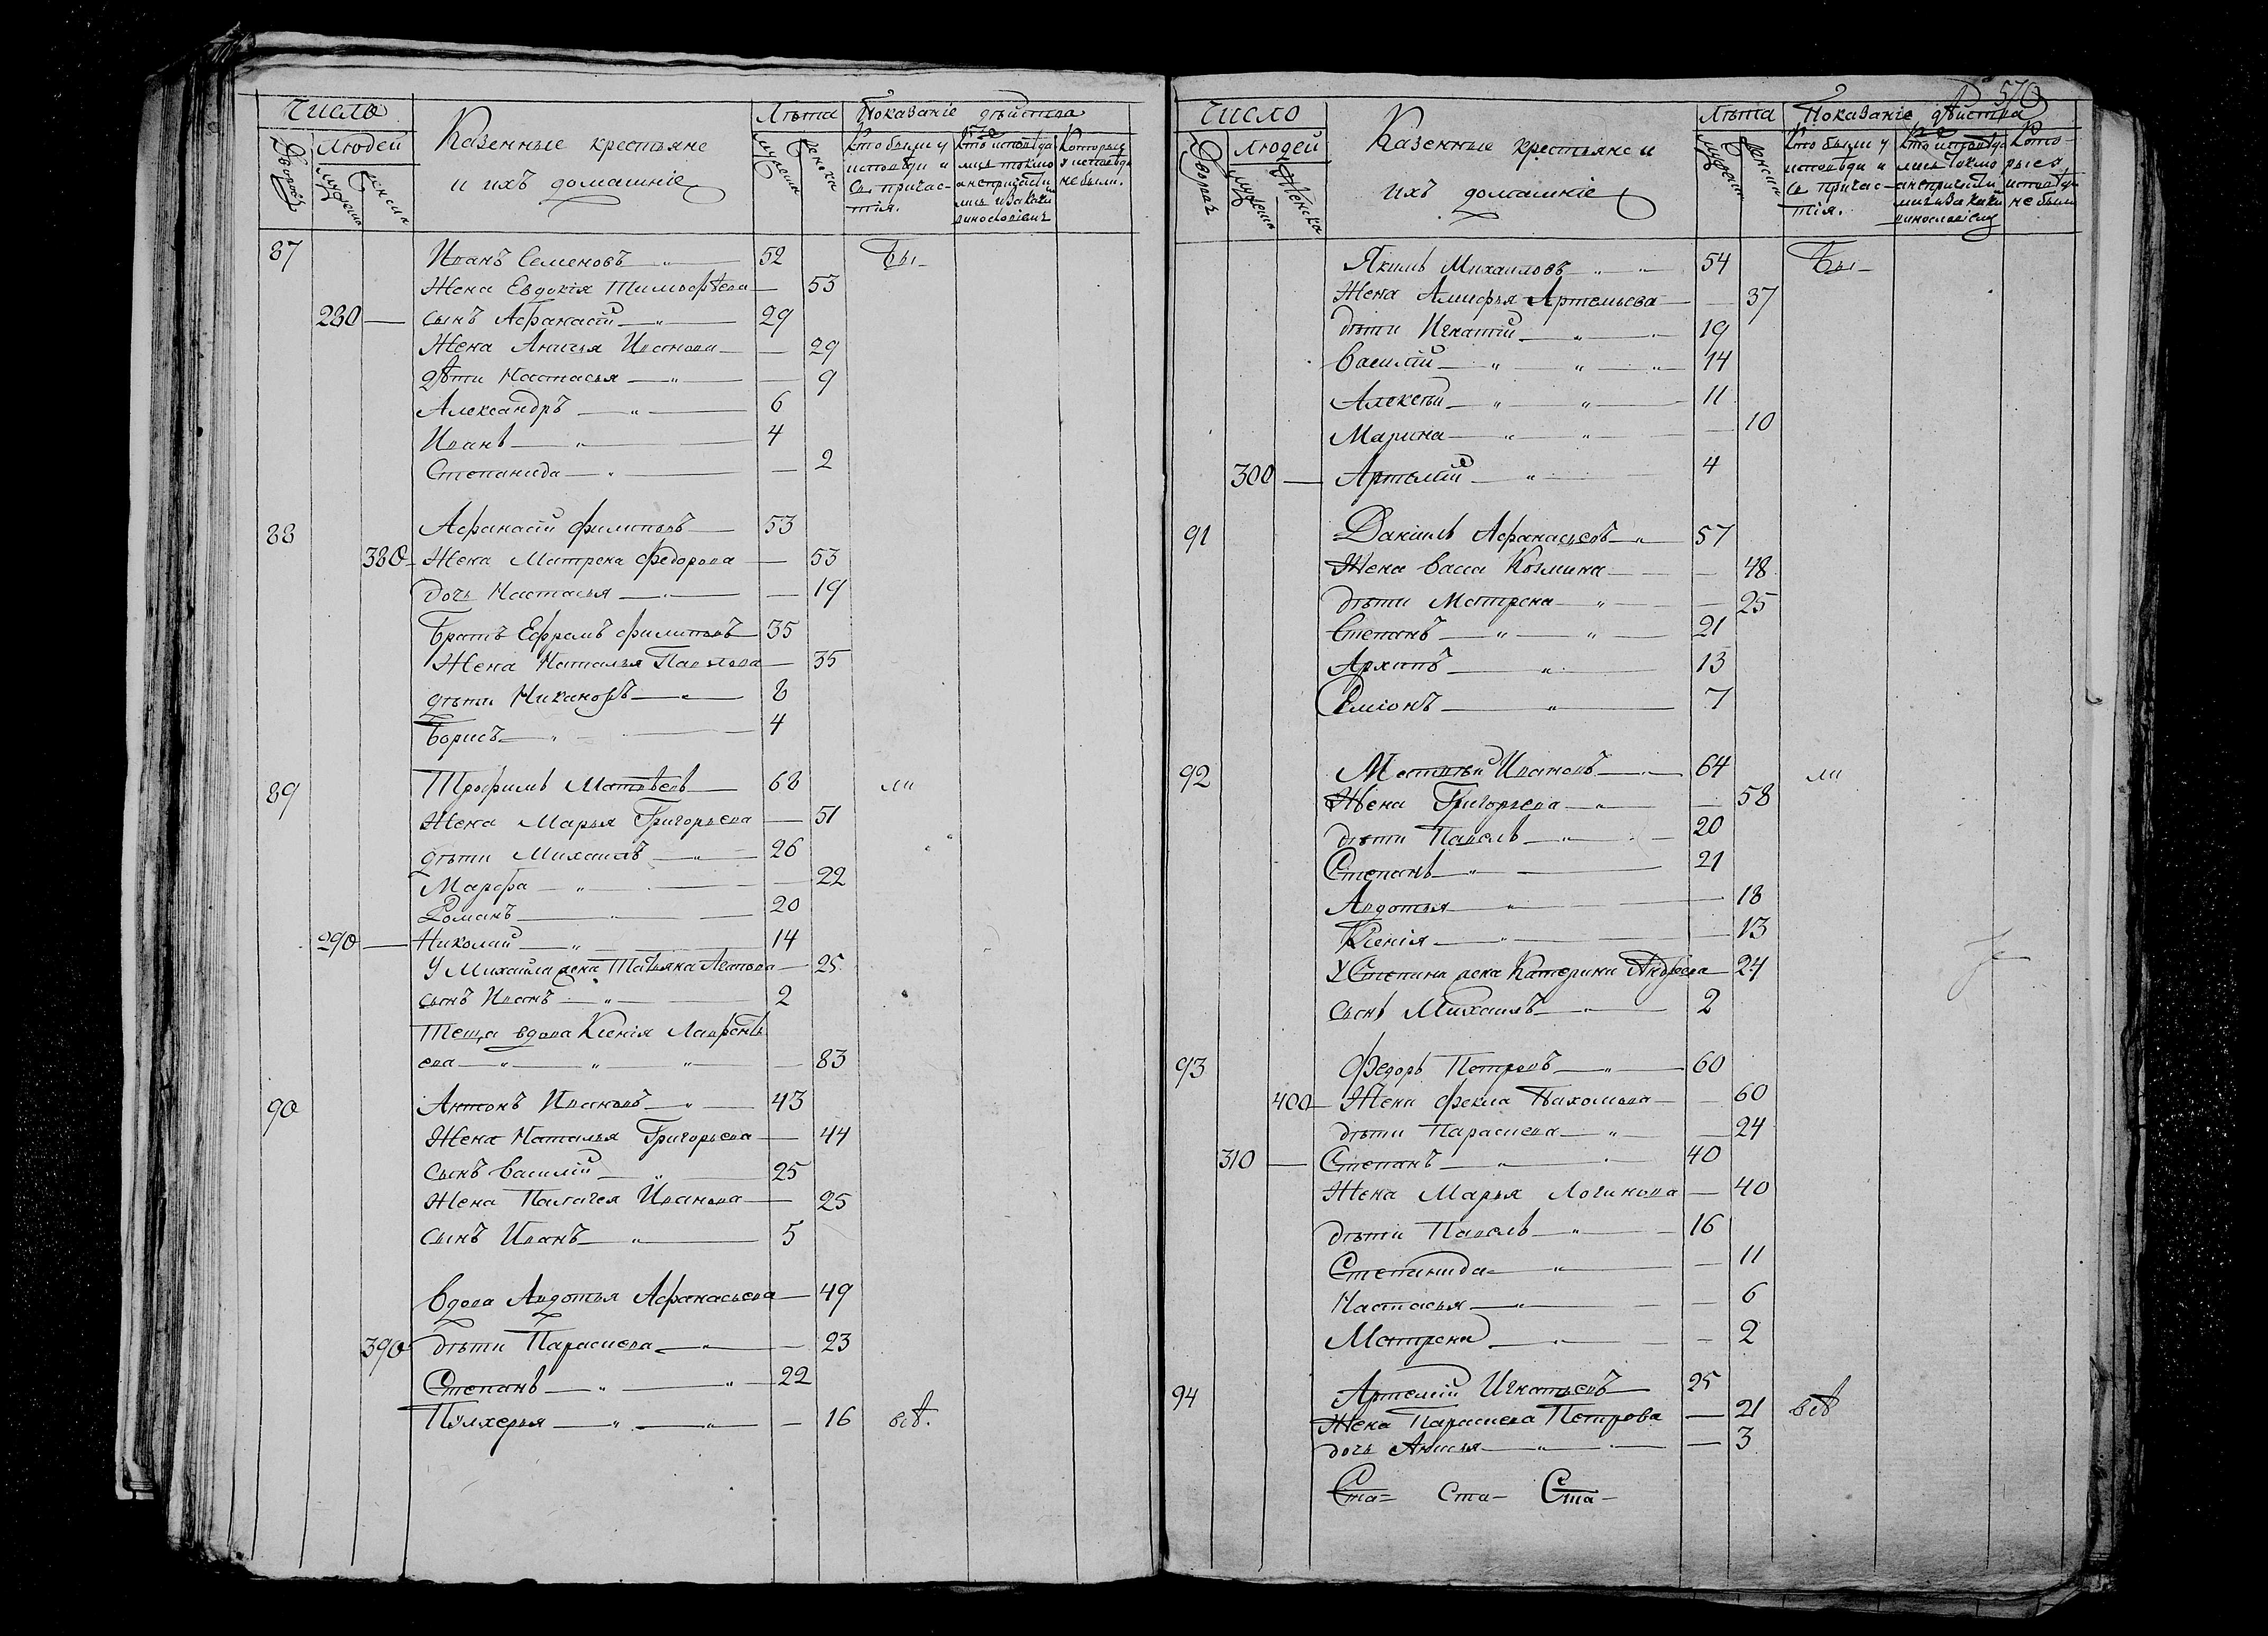 Число
Людей
Дворовъ
мужеска
женска
Казенные крестьяне
и ихъ домашніе
Лѣта
мужеска
женска
Показаніе дѣйства
Кто были у
исповѣди и
Св. причас-
тія.
Кто исповѣда
лись токмо
а не причасти
лись и за какимъ
винословіемъ
Которые
у исповѣди
не были.
87 Иванъ Семеновъ 52 Бы-
Жена Евдокія Тимофѣева 53
280 сынъ Афанасій 29
Жена Анисья Иванова 29
дѣти Настасья 9
Александръ 6
Иванъ 4
Степанида 2
88 Афанасій Филиповъ 53
380 Жена Матрена Федорова 53
дочь Настасья 19
Братъ Ефремъ Филиповъ 35
Жена Наталья Павлова 35
дѣти Никаноръ 8
Борисъ 4
89 Трофимъ Матвѣевъ 68 ли
Жена Марья Григорьева 51
дѣти Михаилъ 26
Марфа 22
Романъ 20
290 Николай 14
У Михаила жена Татьяна Агапова 25
сынъ Иванъ 2
Теща вдова Ксенія Лаврентье
ева 83
90 Антонъ Ивановъ 43
Жена Наталья Григорьева 44
сынъ Василій 25
Жена Палагея Иванова 25
сынъ Иванъ 5
Вдова Авдотья Афанасьева 49
390 дѣти Парасцева 23
Степанъ 22
Пулхерья 16 всѣ.
570
Число
Людей
Дворовъ
мужеска
Женска
Казенные крестьяне и
ихъ домашніе
Лѣта
мужеска
женска
Показаніе дѣйства
Кто были у
исповѣди и
Св. причас-
тія.
Кто исповѣда
лись токмо
а не причасти
лись и за какимъ
винословіемъ
Кото-
рые у
исповѣди
не были
Якимъ Михаиловъ 54 Бы-
Жена Алифья Артемьева 37
дѣти Игнатій 19
Василій 14
Алексѣй 11
Марина 10
300 Артемій 4
91 Даніилъ Афанасьевъ 57
Жена Васса Козмина 48
дѣти Матрена 25
Степанъ 21
Архипъ 13
Симіонъ 7
92 Матвѣй Ивановъ 64 ли
Жена Григорьева 58
дѣти Павелъ 20
Степанъ 21
Авдотья 18
Ксенія 13
У Степана жена Катерина Андреева 24
сынъ Михаилъ 2
93 Федоръ Петровъ 60
400 Жена Фекла Пахомова 60
дѣти Парасцева 24
310 Степанъ 40
Жена Марья Логинова 40
дѣти Павелъ 16
Степанида 11
Настасья 6
Матрена 2
94 Артемій Игнатьевъ 25
Жена Парасцева Петрова 21 всѣ
дочь Анисья 3
Ста= Ста- Ста-